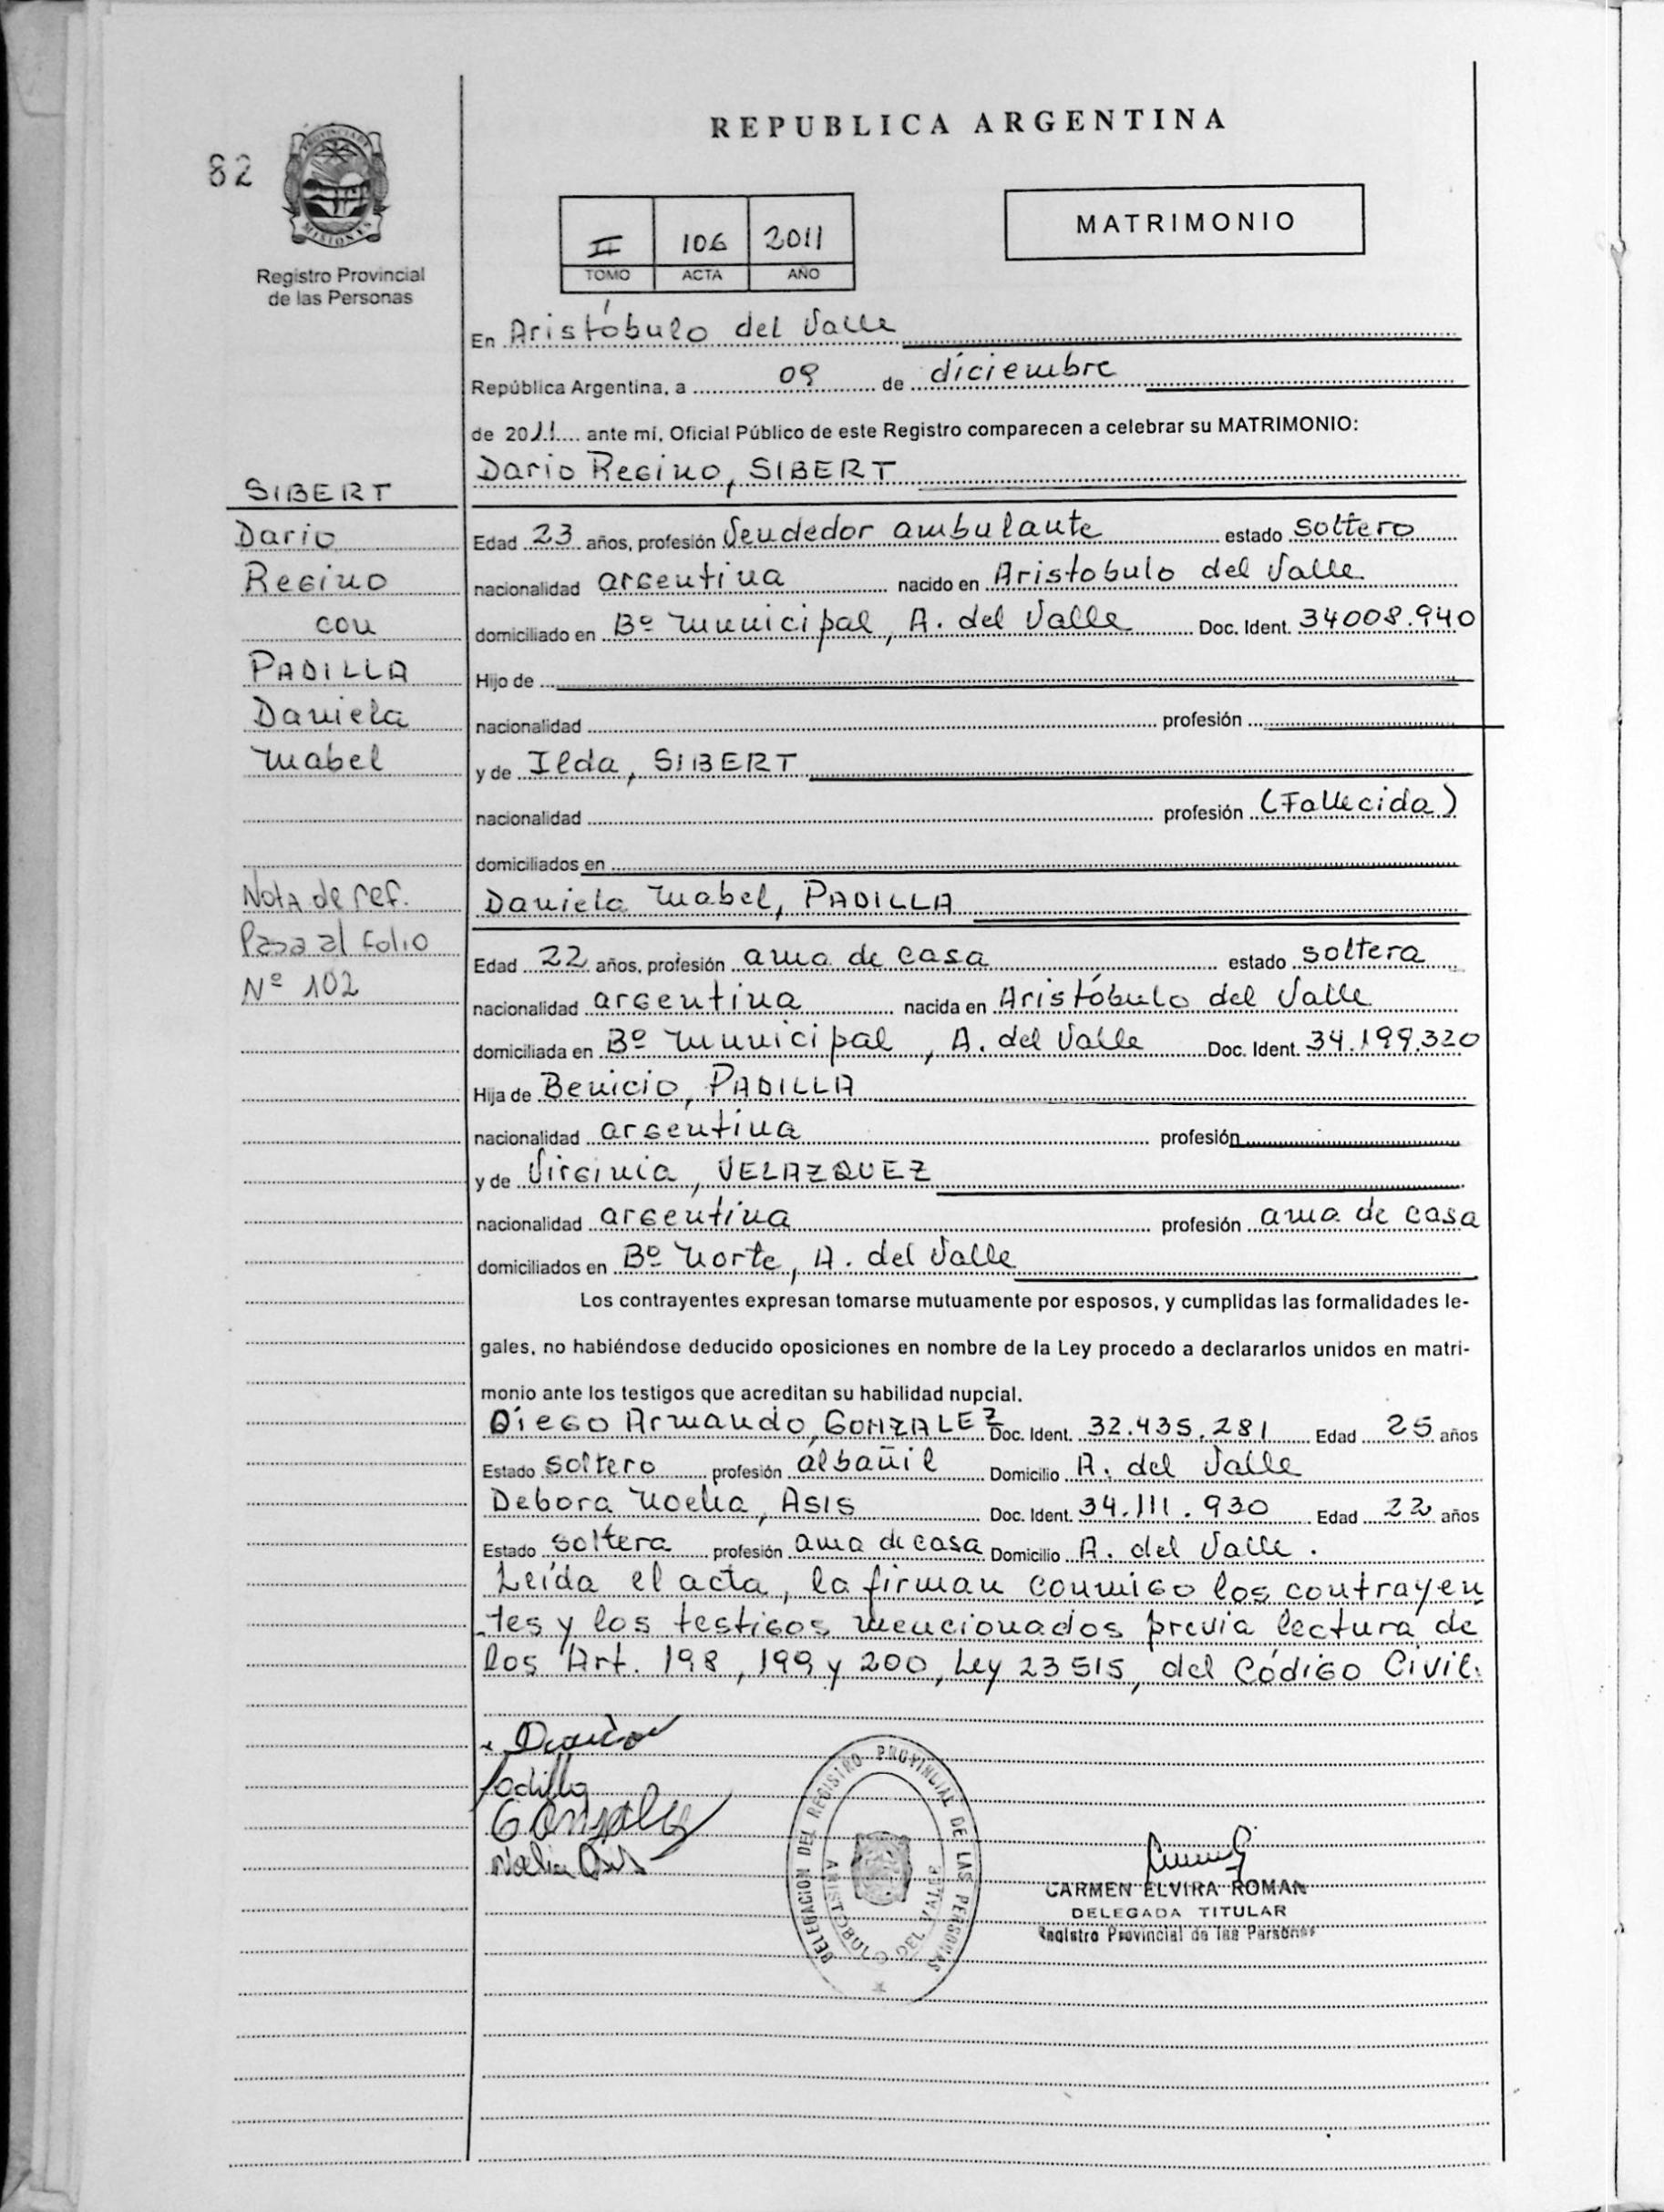 REPUBLICA ARGENTINA
82
PROVINCIA DE
MISIONES
Registro Provincial
de las Personas
II 106 2011
TOMO ACTA AÑO
MATRIMONIO
En Aristóbulo del Valle
República Argentina, a 09 de diciembre
de 2011 ante mi, Oficial Público de este Registro comparecen a celebrar su MATRIMONIO:
Dario Regino, SIBERT
Edad 23 años, profesión Vendedor ambulante estado soltero
nacionalidad argentina nacido en Aristobulo del Valle
domiciliado en Bº Municipal, A. del Valle Doc. Ident. 34008.940
Hijo de
nacionalidad profesión
y de Ilda, SIBERT
nacionalidad profesión (Fallecida)
domiciliados en
Daniela Mabel, PADILLA
Edad 22 años, profesión ama de casa estado soltera
nacionalidad argentina nacida en Aristóbulo del Valle
domiciliada en Bº Municipal, A. del Valle Doc. Ident. 34.199.320
Hija de Benicio, PADILLA
nacionalidad argentina profesión
y de Virginia, VELAZQUEZ
nacionalidad argentina profesión ama de casa
domiciliados en Bº Norte, A. del Valle
Los contrayentes expresan tomarse mutuamente por esposos, y cumplidas las formalidades le-
gales, no habiéndose deducido oposiciones en nombre de la Ley procedo a declararlos unidos en matri-
monio ante los testigos que acreditan su habilidad nupcial.
Diego Armando, GONZALEZ Doc. Ident. 32.435.281 Edad 25 años
Estado soltero profesión albañil Domicilio A. del Valle
Debora Noelia, ASIS Doc. Ident. 34.111.930 Edad 22 años
Estado soltera profesión ama de casa Domicilio A. del Valle.
Leída el acta, la firman conmigo los contrayen
-tes y los testigos mencionados previa lectura de
los Art. 198, 199 y 200, Ley 23515, del Código Civil.
SIBERT
Dario
Regino
con
PADILLA
Daniela
Mabel
Nota de ref.
Pasa al Folio
Nº 102
Padilla
Gonzalez
Noelia Asis
DELEGACION DEL REGISTRO PROVINCIAL DE LAS PERSONAS
ARISTOBULO DEL VALLE
CARMEN ELVIRA ROMAN
DELEGADA TITULAR
Registro Provincial de las Personas